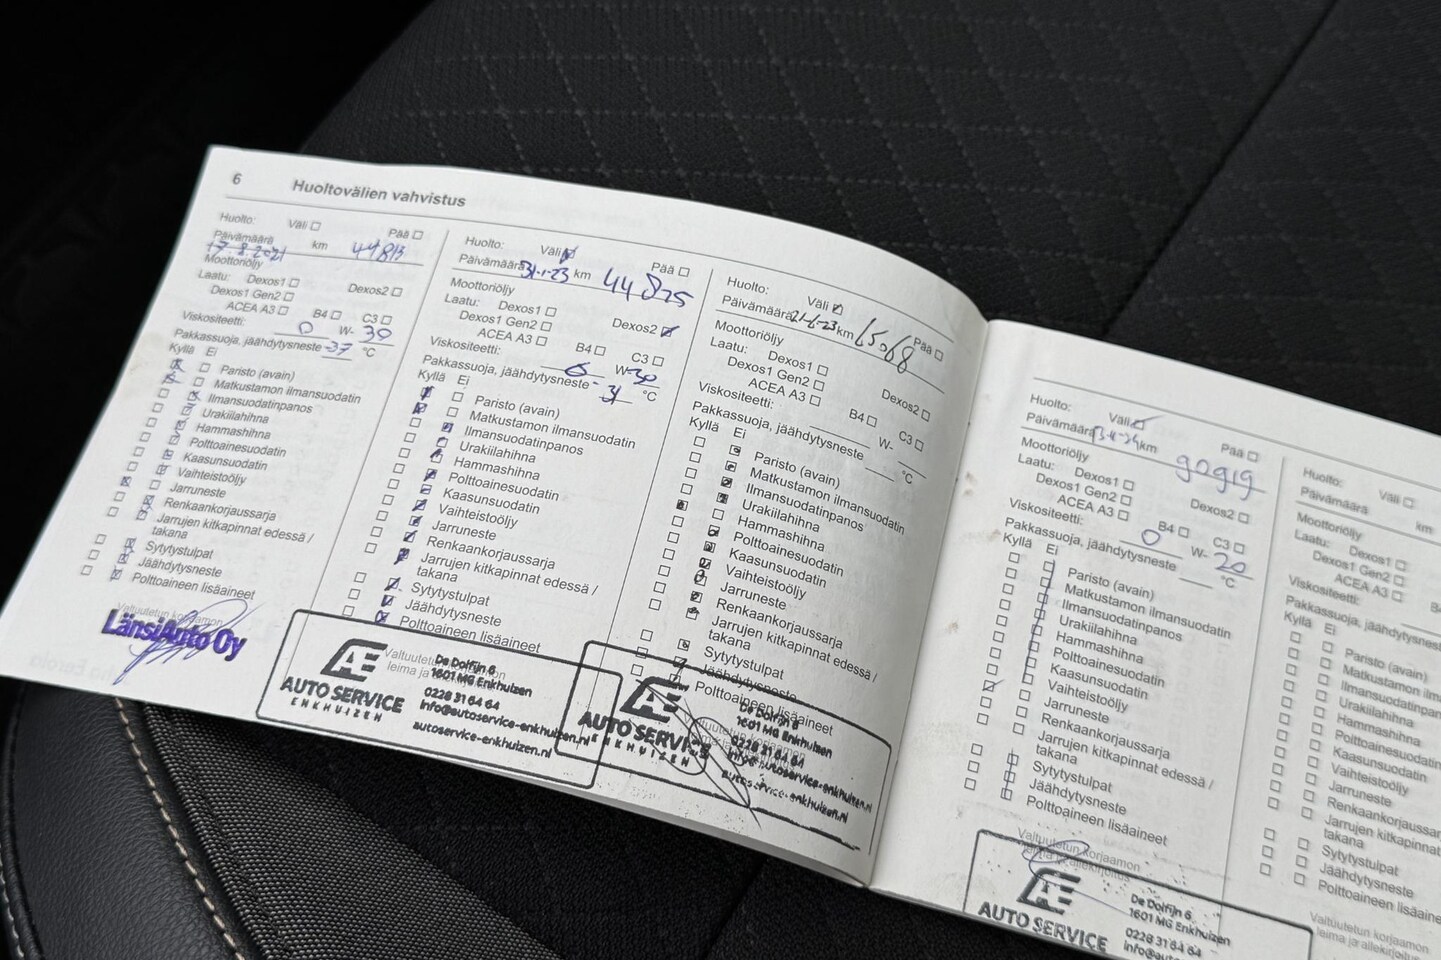 6 Huoltovälien vahvistus
Huolto: Väli Pää
Päivämäärä km
17.8.2021 44813
Moottoriöljy
Laatu: Dexos1 Dexos2
Dexos1 Gen2
ACEA A3 B4 C3
Viskositeetti: 0 W- 30
Pakkassuoja, jäähdytysneste -37 °C
Kyllä Ei
Paristo (avain)
Matkustamon ilmansuodatin
Ilmansuodatinpanos
Urakiilahihna
Hammashihna
Polttoainesuodatin
Kaasunsuodatin
Vaihteistoöljy
Jarruneste
Renkaankorjaussarja
Jarrujen kitkapinnat edessä /
takana
Sytytystulpat
Jäähdytysneste
Polttoaineen lisäaineet
Valtuutetun korjaamon
LänsiAuto Oy
Huolto: Väli Pää
Päivämäärä 31-1-23 km 44825
Moottoriöljy
Laatu: Dexos1 Dexos2
Dexos1 Gen2
ACEA A3 B4 C3
Viskositeetti: 0 W- 30
Pakkassuoja, jäähdytysneste -31 °C
Kyllä Ei
Paristo (avain)
Matkustamon ilmansuodatin
Ilmansuodatinpanos
Urakiilahihna
Hammashihna
Polttoainesuodatin
Kaasunsuodatin
Vaihteistoöljy
Jarruneste
Renkaankorjaussarja
Jarrujen kitkapinnat edessä /
takana
Sytytystulpat
Jäähdytysneste
Polttoaineen lisäaineet
Valtuutetun korjaamon
leima ja
AE
AUTO SERVICE
ENKHUIZEN
De Dolfijn 6
1601 MG Enkhuizen
0228 31 64 64
info@autoservice-enkhuizen.nl
autoservice-enkhuizen.nl
Huolto: Väli Pää
Päivämäärä 21-6-23 km 65068
Moottoriöljy
Laatu: Dexos1 Dexos2
Dexos1 Gen2
ACEA A3 B4 C3
Viskositeetti: W-
Pakkassuoja, jäähdytysneste °C
Kyllä Ei
Paristo (avain)
Matkustamon ilmansuodatin
Ilmansuodatinpanos
Urakiilahihna
Hammashihna
Polttoainesuodatin
Kaasunsuodatin
Vaihteistoöljy
Jarruneste
Renkaankorjaussarja
Jarrujen kitkapinnat edessä /
takana
Sytytystulpat
Jäähdytysneste
Polttoaineen lisäaineet
AE
AUTO SERVICE
ENKHUIZEN
De Dolfijn 6
1601 MG Enkhuizen
0228 31 64 64
info@autoservice-enkhuizen.nl
autoservice-enkhuizen.nl
Huolto: Väli Pää
Päivämäärä km 90919
Moottoriöljy
Laatu: Dexos1 Dexos2
Dexos1 Gen2
ACEA A3 B4 C3
Viskositeetti: 0 W- 20
Pakkassuoja, jäähdytysneste °C
Kyllä Ei
Paristo (avain)
Matkustamon ilmansuodatin
Ilmansuodatinpanos
Urakiilahihna
Hammashihna
Polttoainesuodatin
Kaasunsuodatin
Vaihteistoöljy
Jarruneste
Renkaankorjaussarja
Jarrujen kitkapinnat edessä /
takana
Sytytystulpat
Jäähdytysneste
Polttoaineen lisäaineet
Valtuutetun korjaamon
leima ja allekirjoitus
AE
AUTO SERVICE
De Dolfijn 6
1601 MG Enkhuizen
0228 31 64 64
info@autos
Huolto: Väli
Päivämäärä km
Moottoriöljy
Laatu: Dexos1
Dexos1 Gen2
ACEA A3
Viskositeetti:
Pakkassuoja, jäähdytysneste
Kyllä Ei
Paristo (avain)
Matkustamon ilmansuodat
Ilmansuodatinpanos
Urakiilahihna
Hammashihna
Polttoainesuodatin
Kaasunsuodatin
Vaihteistoöljy
Jarruneste
Renkaankorjaussar
Jarrujen kitkapinnat
takana
Sytytystulpat
Jäähdytysneste
Polttoaineen lisäaine
Valtuutetun korjaamon
leima ja allekirjoitus